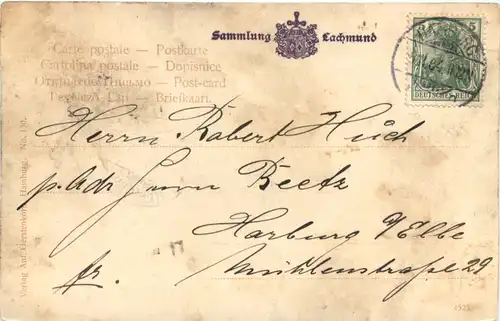 Sammlung Lachmund
Carte postale — Postkarte
Cartolina postale — Dopisnice
Открытое Письмо — Post-card
Levelező Lap — Briefkaart.
DEUTSCHES REICH
Herrn Robert Huch
p. Adr Herrn Beetz
Harburg a/Elbe
fr. Mühlenstraße 29
Verlag Ant. Gerstenkorn, Hamburg. No. 130.